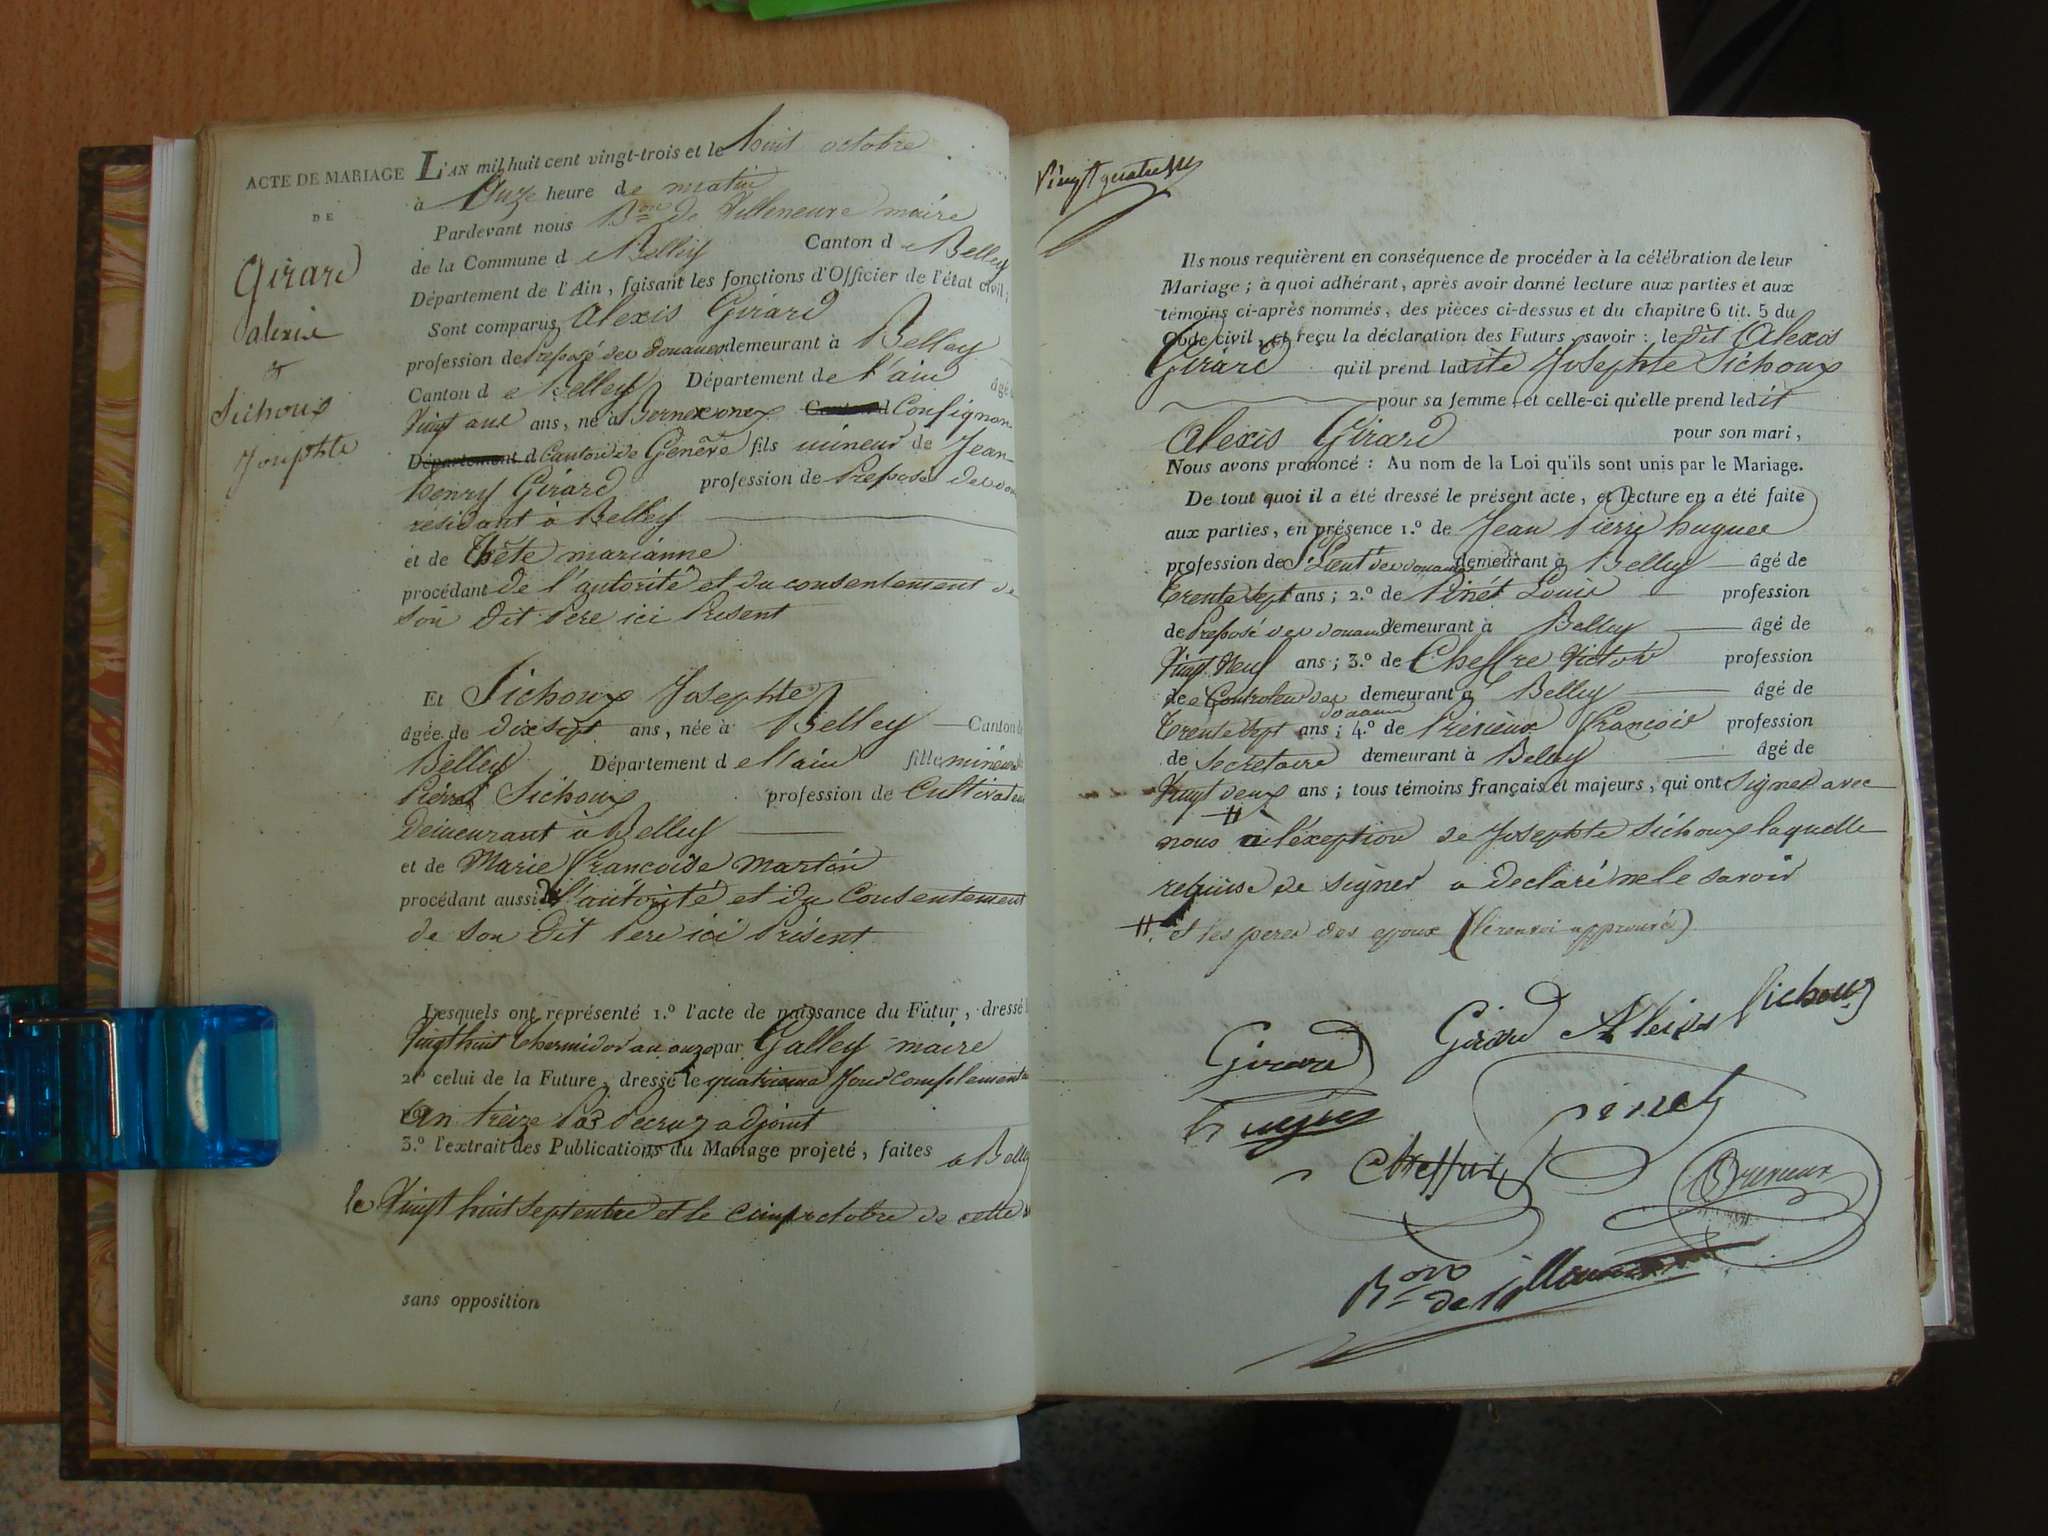 ACTE DE MARIAGE
DE
Girard
alexis
et
Sichoux
Josephte
L'AN mil huit cent vingt-trois et le huit octobre
à Onze heure de matin
Pardevant nous Bon de Villeneuve maire
de la Commune de Belley Canton de Belley
Département de l'Ain, faisant les fonctions d'Officier de l'état civil;
Sont comparus alexis Girard
profession de Preposé des Douanes demeurant à Belley
Canton de Belley Département de l'ain âgé
Vingt ans ans, né à Bernex onex Canton d Confignon
Département d Canton de Genêve fils mineur de Jean
henry Girard profession de Preposé des dou
résidant à Belley
et de Thête marianne
procédant de l'autorité et du consentement de
son dit Pere ici Present
Et Sichoux Josephte
âgée de dix sept ans, née à Belley Canton de
Belley Département de l'ain fille mineure
Pierre Sichoux profession de Cultivateur
Demeurant à Belley
et de Marie francoise martin
procédant aussi de l'autorité et du Consentement
de son Dit Pere ici Présent
Lesquels ont représenté 1.º l'acte de naissance du Futur, dressé l
Vingt huit thermidor an onze par Galley maire
2.º celui de la Future, dressé le quatrieme Jour complementa
an treize Par Decruz adjoint
3.º l'extrait des Publications du Mariage projeté, faites a Belley
le Vingt huit septembre et le cinq octobre de cette
sans opposition
Vingt quatre
Ils nous requièrent en conséquence de procéder à la célébration de leur
Mariage; à quoi adhérant, après avoir donné lecture aux parties et aux
témoins ci-après nommés, des pièces ci-dessus et du chapitre 6 tit. 5 du
Code civil, et reçu la déclaration des Futurs savoir: le dit Alexis
Girard qu'il prend ladite Josephte Sichoux
pour sa femme, et celle-ci qu'elle prend ledit
Alexis Girard pour son mari,
Nous avons prononcé: Au nom de la Loi qu'ils sont unis par le Mariage.
De tout quoi il a été dressé le présent acte, et lecture en a été faite
aux parties, en présence 1.º de Jean Pierre hugues
profession de S. Lieut des douanes demeurant à Belley âgé de
trente sept ans; 2.º de Pinét Louis profession
de Preposé des douanes demeurant à Belley âgé de
Vingt Neuf ans; 3.º de Cheffre Victor profession
de Controleur des douanes demeurant à Belley âgé de
trente sept ans; 4.º de Prérieux francois profession
de Secretaire demeurant à Belley âgé de
Vingt deux ans; tous témoins français et majeurs, qui ont signer avec
nous # a l'éxeption de Josephte Sichoux laquelle
requise de signer a declaré ne le savoir
# et les peres des epoux (le renvoi approuvé)
Girard Girard Alexis Sichoux
hugues Pinet
Prerieux
Bon de Villeneuve